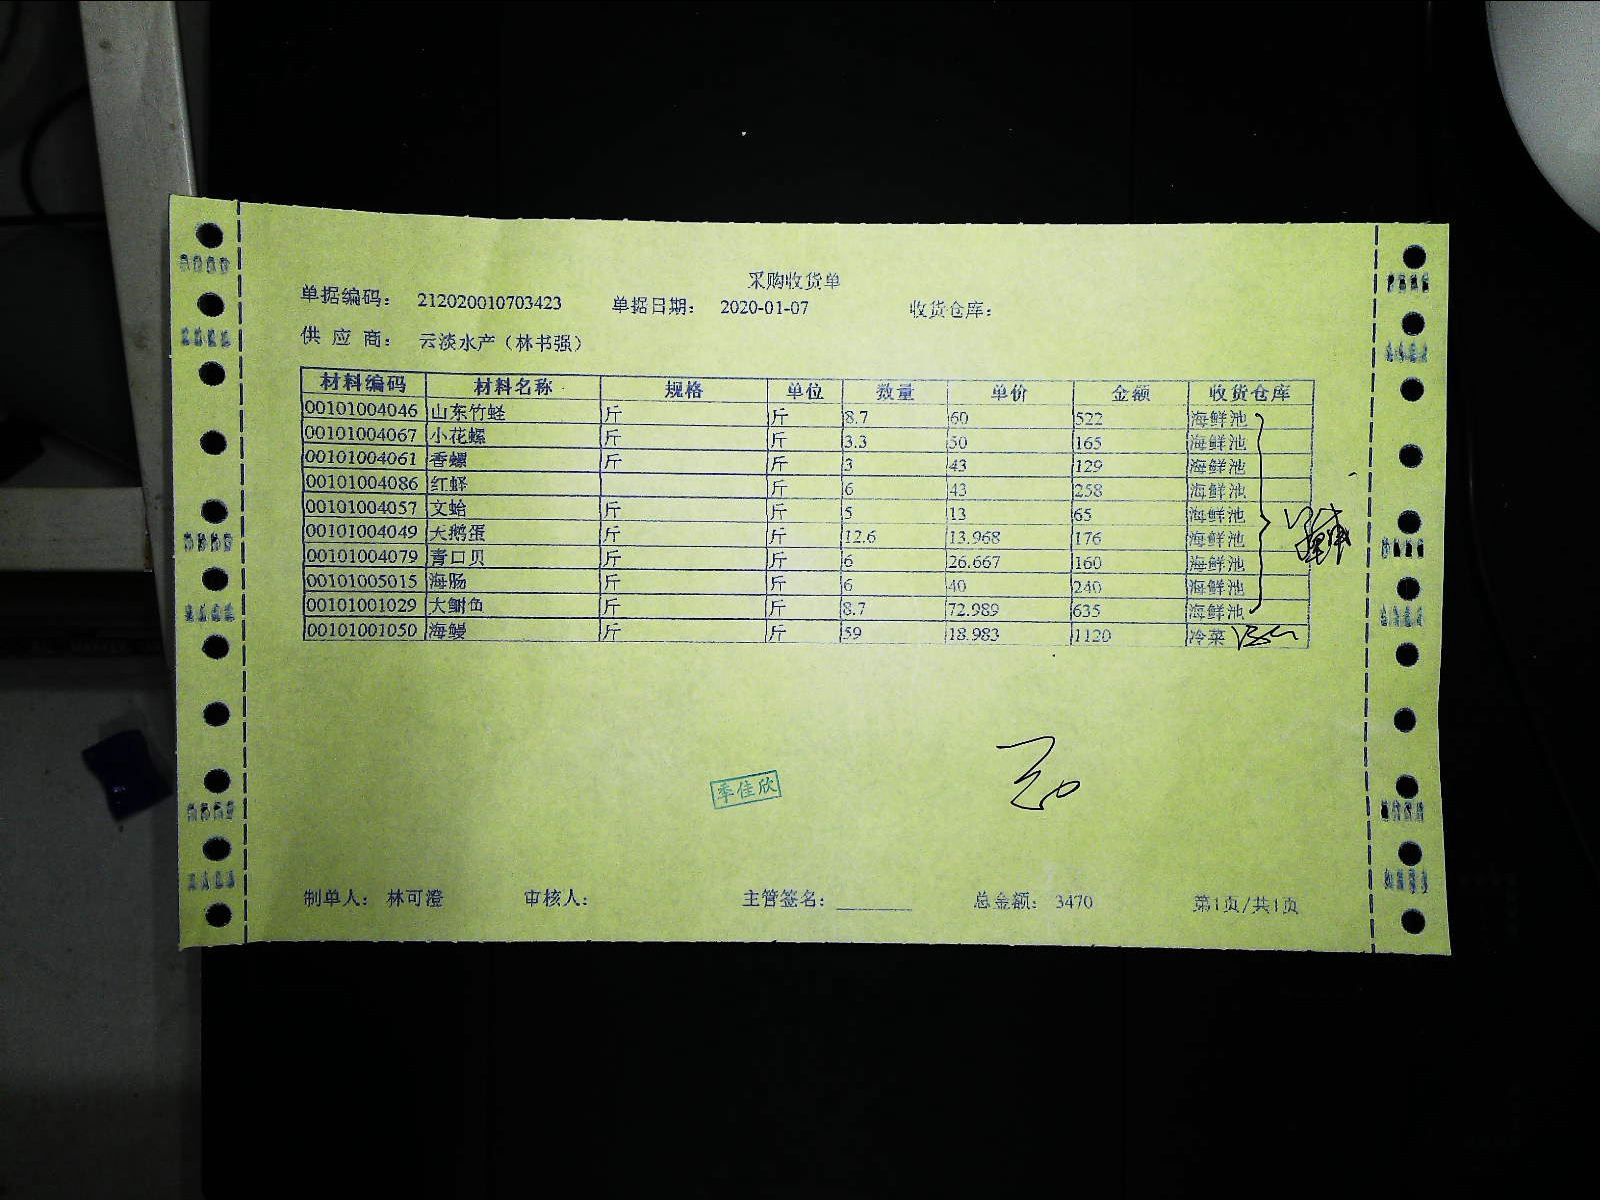 采购收货单
单据编码: 212020010703423 单据日期: 2020-01-07 收货仓库:
供 应 商: 云淡水产(林书强)
材料编码 材料名称 规格 单位 数量 单价 金额 收货仓库
00101004046 山东竹蛏 斤 斤 8.7 60 522 海鲜池
00101004067 小花螺 斤 斤 3.3 50 165 海鲜池
00101004061 香螺 斤 斤 3 43 129 海鲜池
00101004086 红蟳 斤 6 43 258 海鲜池
00101004057 文蛤 斤 斤 5 13 65 海鲜池
00101004049 天鹅蛋 斤 斤 12.6 13.968 176 海鲜池
00101004079 青口贝 斤 斤 6 26.667 160 海鲜池
00101005015 海肠 斤 斤 6 40 240 海鲜池
00101001029 大䱛鱼 斤 斤 8.7 72.989 635 海鲜池
00101001050 海鳗 斤 斤 59 18.983 1120 冷菜
季佳欣
制单人: 林可澄 审核人: 主管签名: 总金额: 3470 第1页/共1页